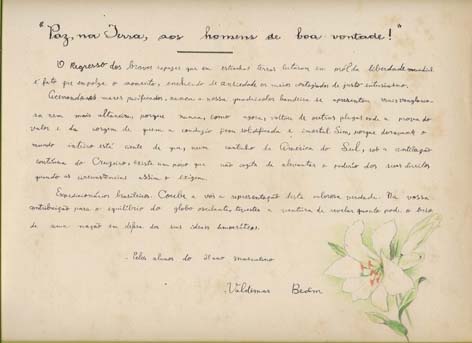 "Paz, na Terra, aos homens de boa vontade!"
O Regresso dos bravos rapazes que em estranhas terras lutaram em prol da liberdade mundial
é fato que empolga o momento, enchendo de ansiedade os meios contagiados de justo entusiasmo.
mares pacificados, nunca o nosso bandeira se apresentou
sa nem mais altaneira, porque nunca, como agora, voltou de outras plagas onde a prova do
valor e da coragem de quem a conduziu ficou solidificada e imortal. Sim, porque doravante o
mundo inteiro está ciente de que, num cantinho da América do Sul, sob a cintilação
contínua do Cruzeiro, existe um povo que não cogita de alevantar o poderio dos seus direitos
quando as circunstâncias assim o exigem.
Expedicionários brasileiros. Coube a vós a representação desta valorosa verdade. Na vossa
contribuição para o equilíbrio do globo oscilante, tivestes a ventura de revelar quanto pode o
de uma nação em defesa dos seus ideais
Pelos alunos do masculino
Valdemar